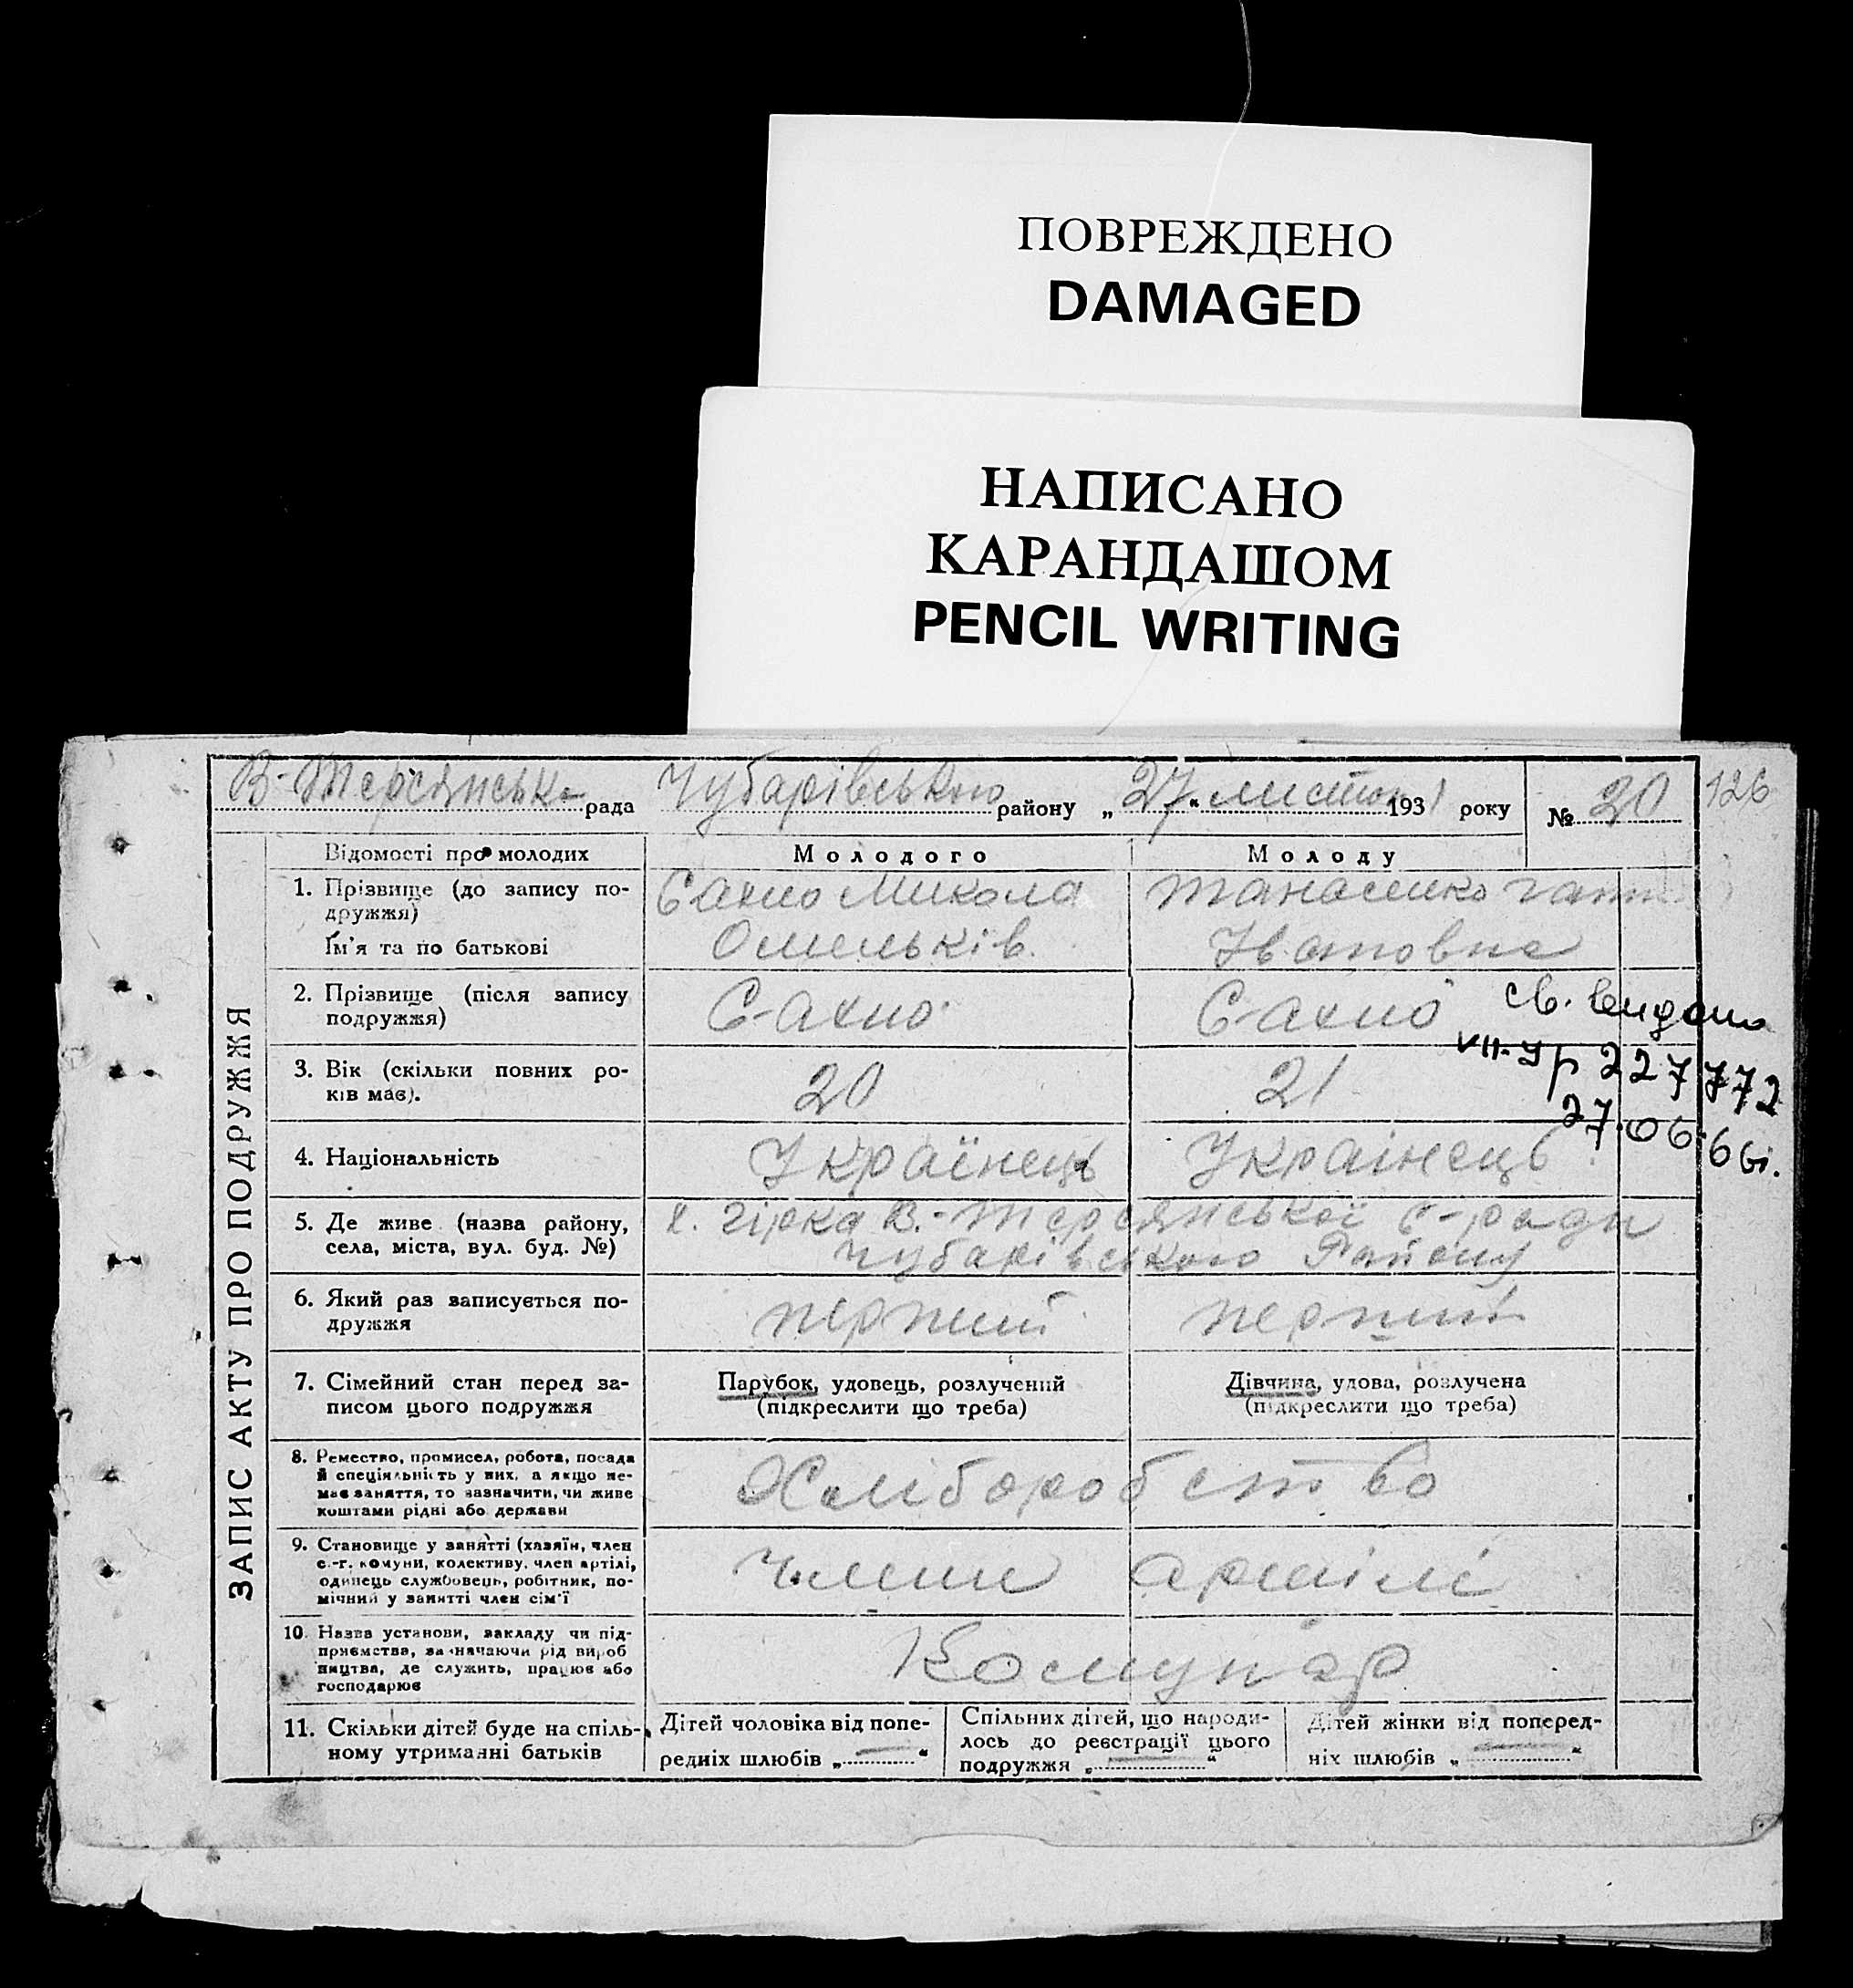 ПОВРЕЖДЕНО
DAMAGED
НАПИСАНО
КАРАНДАШОМ
PENCIL WRITING
В-Терсянська рада Чубарівського району „27“ листоп 1931 року № 20 126
ЗАПИС АКТУ ПРО ПОДРУЖЖЯ
Відомості про молодих Молодого Молоду
1. Прізвище (до запису по-
дружжя)
Ім'я та по батькові
Сахно Микола
Омельків
Танасенко
Івановна
2. Прізвище (після запису
подружжя)
Сахно Сахно
св. видано
VII-УР 227772
27.06.66
3. Вік (скільки повних ро-
ків має).
20 21
4. Національність Українець Українець
5. Де живе (назва району,
села, міста, вул. буд. №)
х. Гірка В.-Терсянської с-ради
Чубарівського Району
6. Який раз записується по-
дружжя
перший перший
7. Сімейний стан перед за-
писом цього подружжя
Парубок, удовець, розлучений
(підкреслити що треба)
Дівчина, удова, розлучена
(підкреслити що треба)
8. Ремество, промисел, робота, посада
й спеціяльність у них, а якщо не-
має заняття, то зазначити, чи живе
коштами рідні або держави
Хліборобство
9. Становище у занятті (хазяїн, член
с.-г. комуни, колективу, член артілі,
одинець службовець, робітник, по-
мічний у занятті член сім'ї
члени артілі
10. Назва установи, закладу чи під-
приємства, зазначаючи рід вироб
ництва, де служить, працює або
господарює
Комунар
11. Скільки дітей буде на спіль-
ному утриманні батьків
Дітей чоловіка від попе-
редніх шлюбів „—“
Спільних дітей, що народи-
лось до реєстрації цього
подружжя „—“
Дітей жінки від поперед-
ніх шлюбів „—“